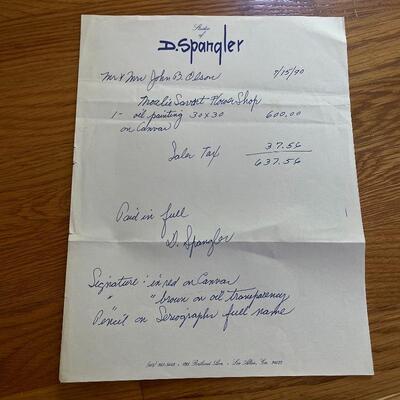 Studio
of
D. Spangler
Mr & Mrs John B. Olson 7/15/90
Flower Shop
1 - oil painting 30x30 600.00
on Canvas
Sales Tax 37.56
637.56
Paid in full
D. Spangler
Signature: in red on Canvas
" " brown on oil transparency
Pencil on Seriographs full name
Portland Ave. • Los Altos, Ca.